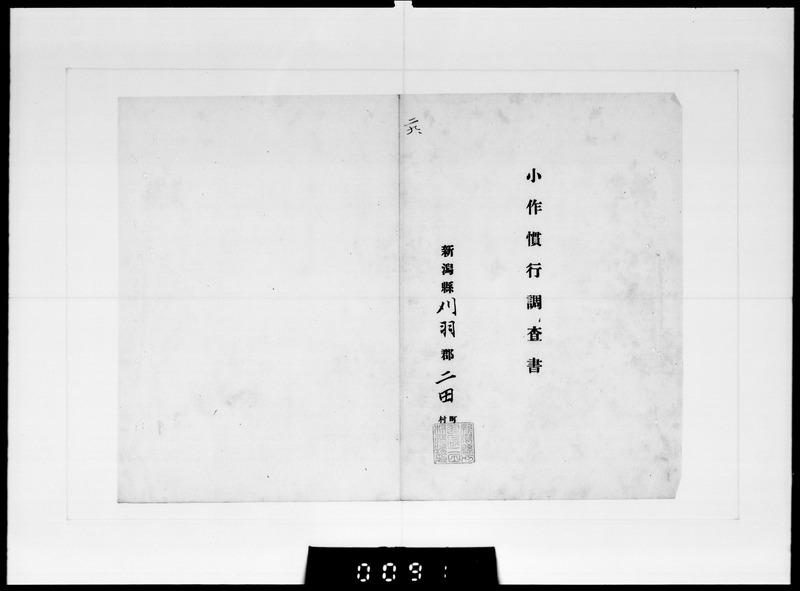 小作慣行調査書
新潟縣刈羽郡二田町村
0091